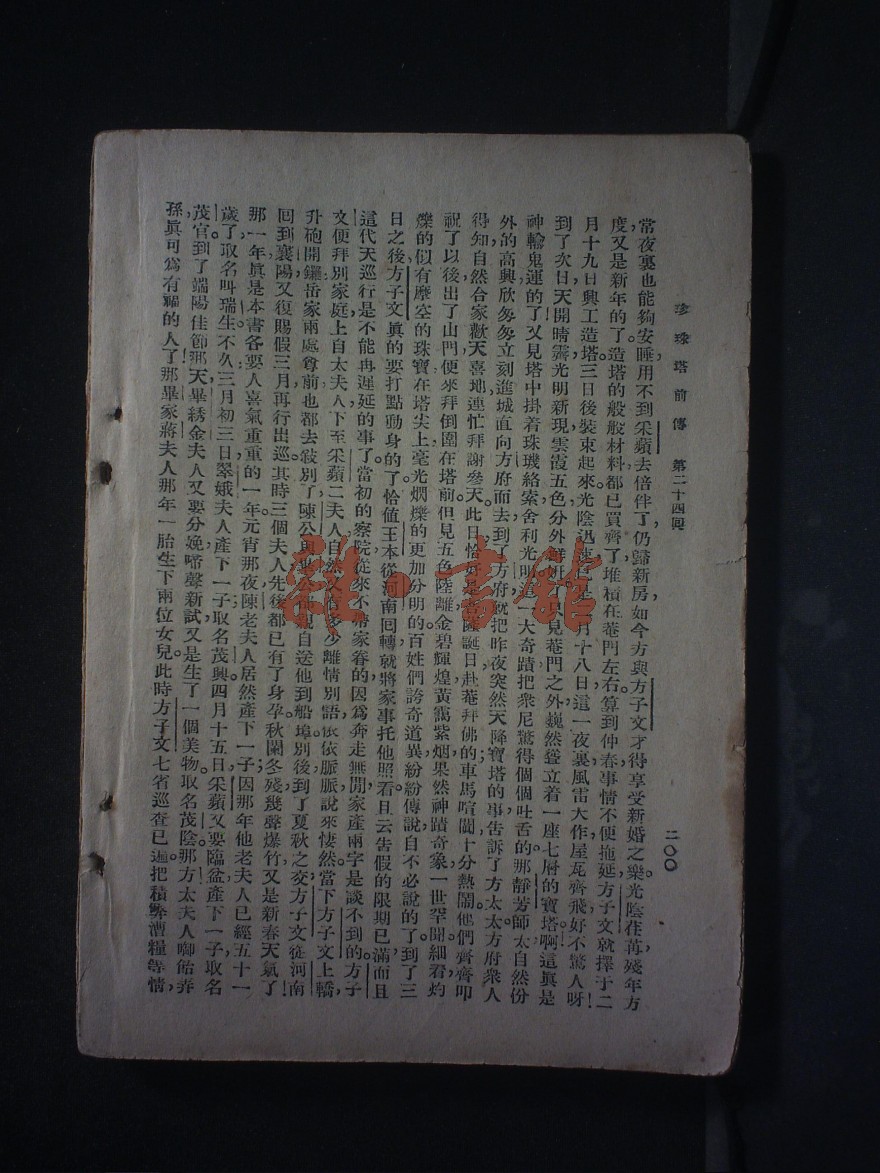 珍珠塔前傳 第二十四回
二〇〇
當夜裏也能夠安睡，用不到采蘋去倍伴了，仍歸新房，如今方與方子文才得享受新婚之樂。光陰荏苒，殘年方
度，又是新年的了。造塔的般般材料，都已買齊了，堆積在菴門左右。算到仲春，事情不便拖延，方子文就擇于二
月十九日興工造塔，三日後裝束起來。光陰迅速，月十八日，這一夜裏風雷大作，屋瓦齊飛，好不驚人呀！
到了次日，天開晴霽，光明新現，雲霞五色，分外鮮，只見菴門之外巍然聳立着一座七層的寶塔。啊，這眞是
神輸鬼運的了！又見塔中掛着珠璣絡索，舍利光明，一大奇蹟，把衆尼驚得個個吐舌的。那靜芳師太自然份
外的高興，欣欣匆匆，立刻進城，直向方府而去。到方府，就把昨夜突然天降寶塔的事，告訴了方太太。方府衆人
得知，自然合家歡天喜地，連忙拜謝參天。此日恰好是誕日，赴菴拜佛的車馬喧闐，十分熱鬧。他們齊齊叩
祝了以後，出了山門，便來拜倒圍在塔前，但見五色陸離，金碧輝煌，黃靄紫烟，果然神蹟奇象，一世罕聞。細看灼
爍的，似有摩空的珠寶，在塔尖上毫光烱爍的更加分明的。百姓們誇奇道異，紛紛傳說，自不必說的了。到了三
日之後，方子文眞的要打點動身的了。恰值王本從河南回轉，就將家事托他照看，且云告假的限期已滿，而且
這代天巡行，是不能再遲延的事了。當初的察院，從來不帶家眷的，因爲奔走無閒，家產兩字是談不到的。方子
文便拜別家庭，上自太夫人，下至采蘋二夫人，自然又有多少離情別語，依依脈脈，說來悽然。當下方子文上轎，
升砲開鑼，岳家兩處尊前也都去敍別了，陳公親自送他到船埠。別後到了夏秋之交，方子文從河南
回到襄陽，又復賜假三月，再行出巡。其時三個夫人先後都已有了身孕。秋闌冬殘，幾聲爆竹，又是新春天氣了！
那一年，眞是本書各要人喜氣重重的一年。元宵那夜，陳老夫人居然產下一子；因那年他老夫人已經五十一
歲了，取名叫瑞生。不久三月初三日，翠娥夫人產下一子，取名茂興。四月十五日，采蘋又要臨盆，產下一子，取名
茂官。到了端陽佳節，那天畢綉金夫人又要分娩，啼聲新試，又是生了一個美物，取名茂陰。那方太夫人啣飴弄
孫，眞可爲有福的人了！那畢家蔣夫人那年一胎生下兩位女兒。此時方子文七省巡查已遍，把積弊漕糧等情，
雜·書館